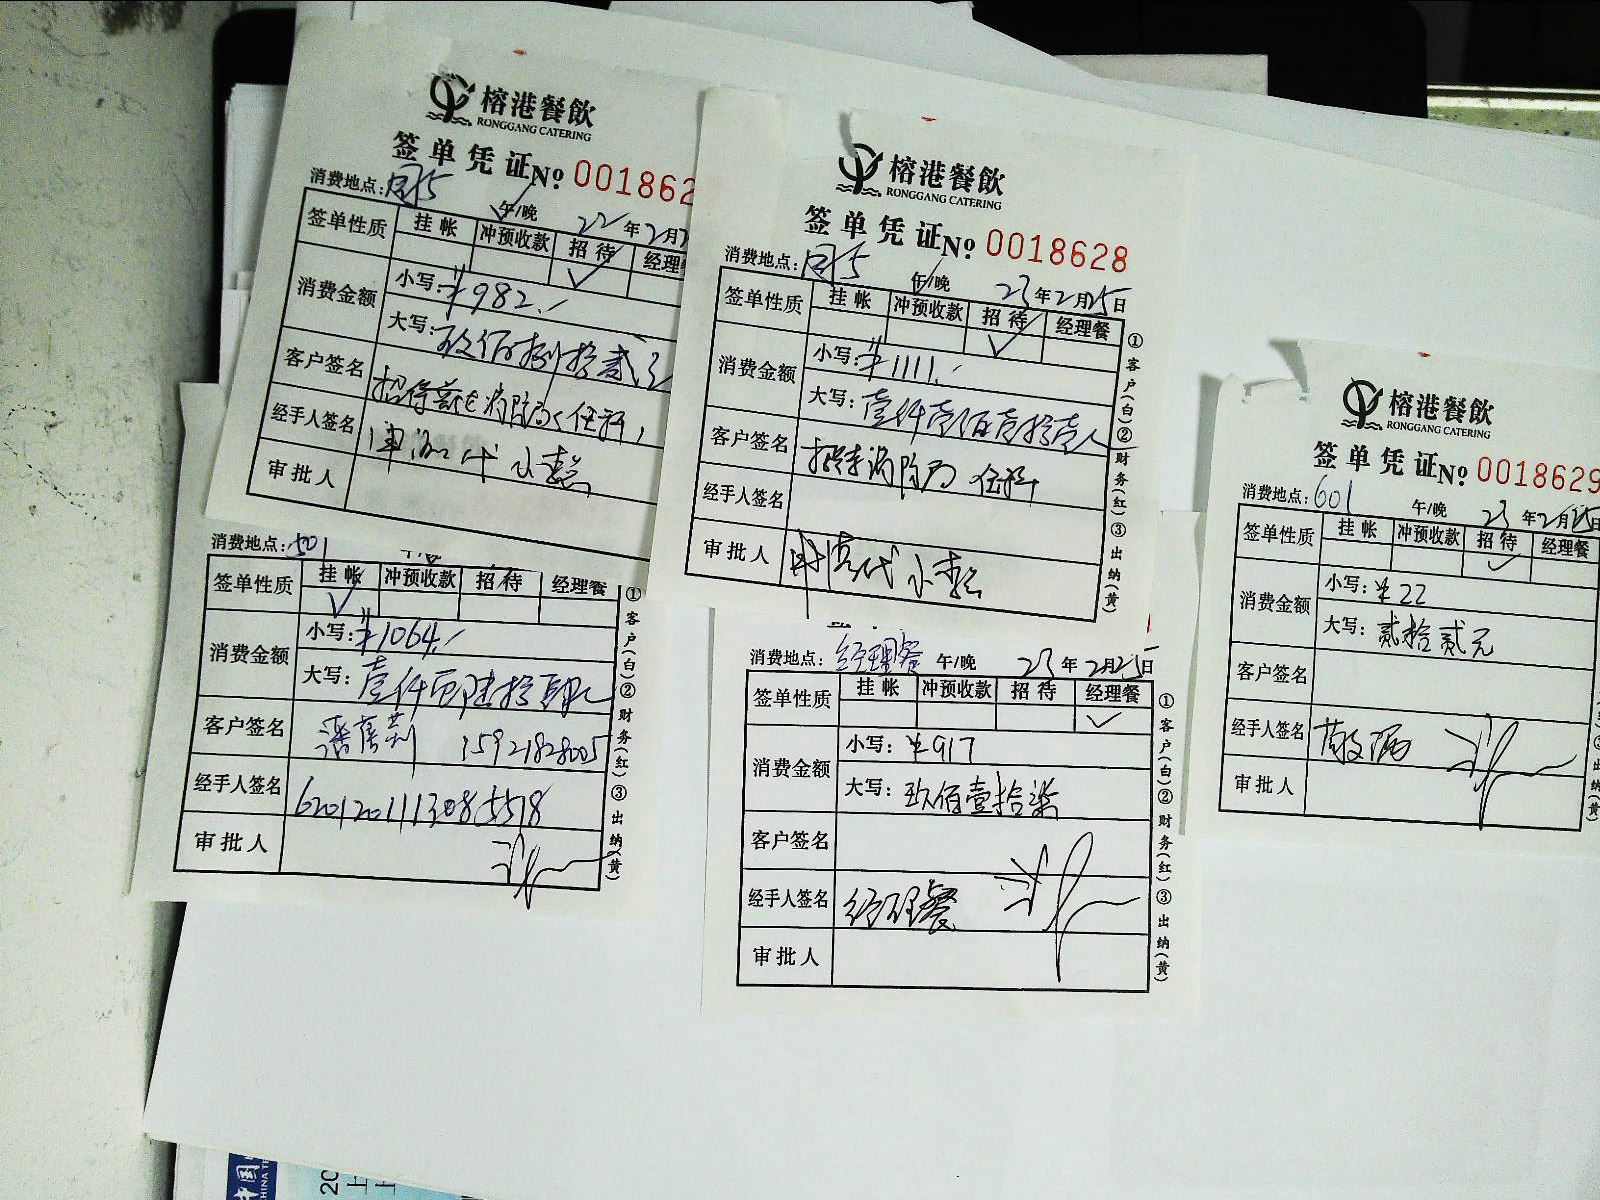 榕港餐飲
RONGGANG CATERING
签单凭证 No 001862
消费地点: 午/晚 22年2月
签单性质 挂帐 冲预收款 招待 经理
消费金额 小写: ¥982.
大写: 玖佰捌拾贰元
客户签名 招待 消防局 任科
经手人签名
审批人
榕港餐飲
RONGGANG CATERING
签单凭证 No 0018628
消费地点: 午/晚 23年2月25日
签单性质 挂帐 冲预收款 招待 经理餐
消费金额 小写: ¥1111.
大写: 壹仟壹佰壹拾壹
客户签名 招待消防局 任科
经手人签名
审批人
①客户(白)②财务(红)③出纳(黄)
榕港餐飲
RONGGANG CATERING
签单凭证 No 0018629
消费地点: 601 午/晚 23年2月25日
签单性质 挂帐 冲预收款 招待 经理餐
消费金额 小写: ¥22
大写: 贰拾贰元
客户签名
经手人签名
审批人
消费地点: 501
签单性质 挂帐 冲预收款 招待 经理餐
消费金额 小写: ¥1064.
大写: 壹仟零陆拾肆元
客户签名 15921828005
经手人签名 6201201113085518
审批人
①客户(白)②财务(红)③出纳(黄)
消费地点: 经理餐 午/晚 23年2月25日
签单性质 挂帐 冲预收款 招待 经理餐
消费金额 小写: ¥917
大写: 玖佰壹拾柒
客户签名
经手人签名 经理餐
审批人
①客户(白)②财务(红)③出纳(黄)
中国